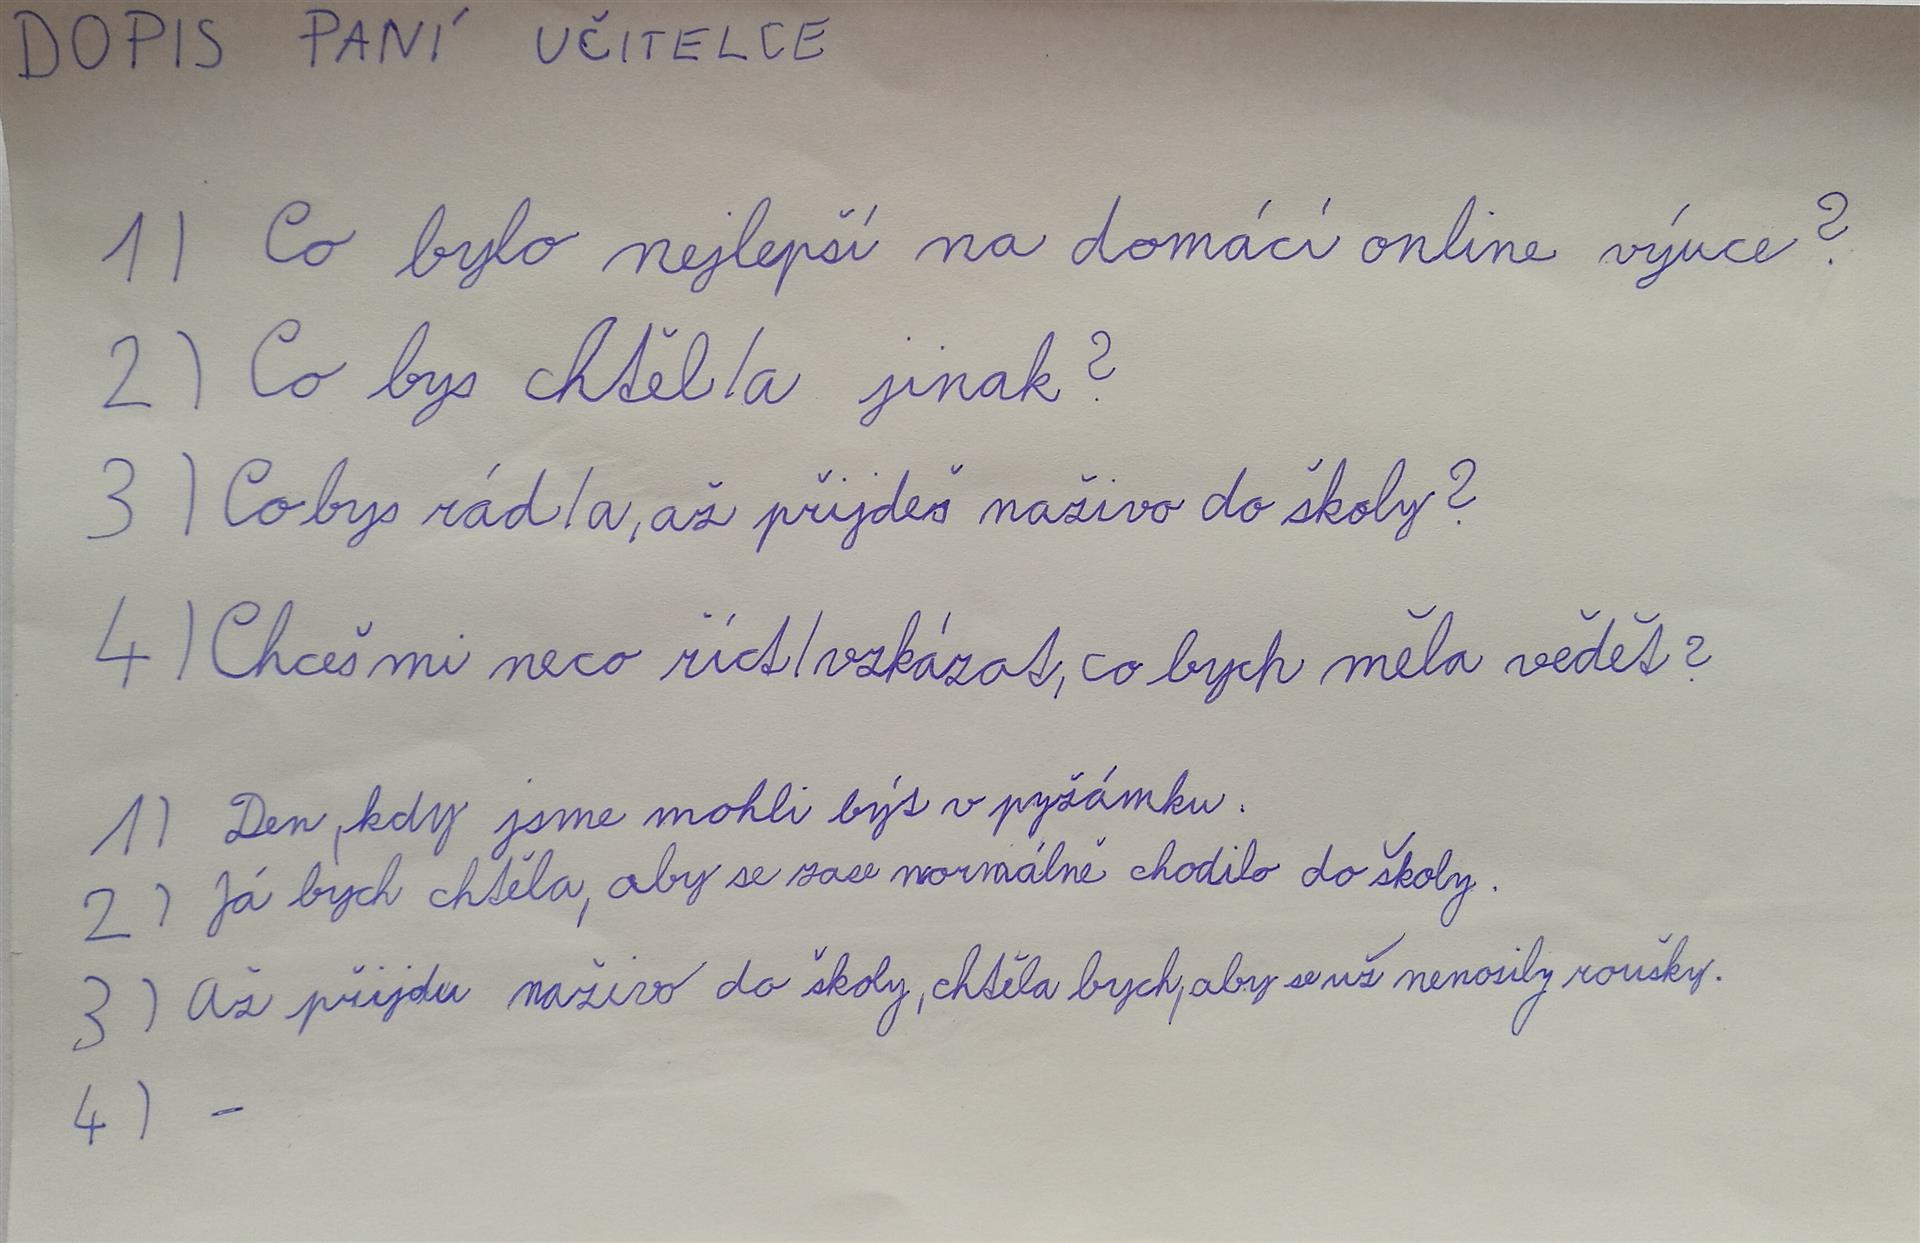 DOPIS PANÍ UČITELCE
1) Co bylo nejlepší na domácí online výuce?
2) Co bys chtěl/a jinak?
3) Co bys rád/a, až přijdeš naživo do školy?
4) Chceš mi neco říct/vzkázat, co bych měla vědět?
1) Den, kdy jsme mohli být v pyžámku.
2) Já bych chtěla, aby se zase normálně chodilo do školy.
3) Až přijdu naživo do školy, chtěla bych, aby se už nenosily roušky.
4) -